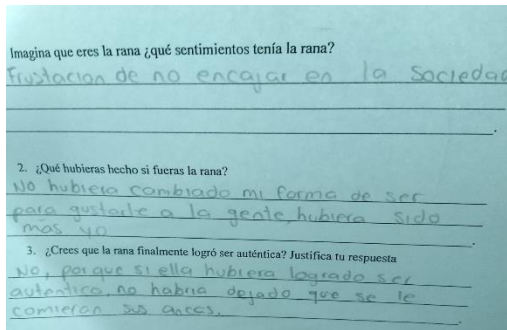 Imagina que eres la rana ¿qué sentimientos tenía la rana?
Frustacion de no encajar en la sociedad
2. ¿Qué hubieras hecho si fueras la rana?
No hubiera cambiado mi forma de ser
para gustarle a la gente, hubiera sido
mas yo
3. ¿Crees que la rana finalmente logró ser auténtica? Justifica tu respuesta
No, porque si ella hubiera logrado ser
autentica, no habria dejado que se le
comieran sus ancas.